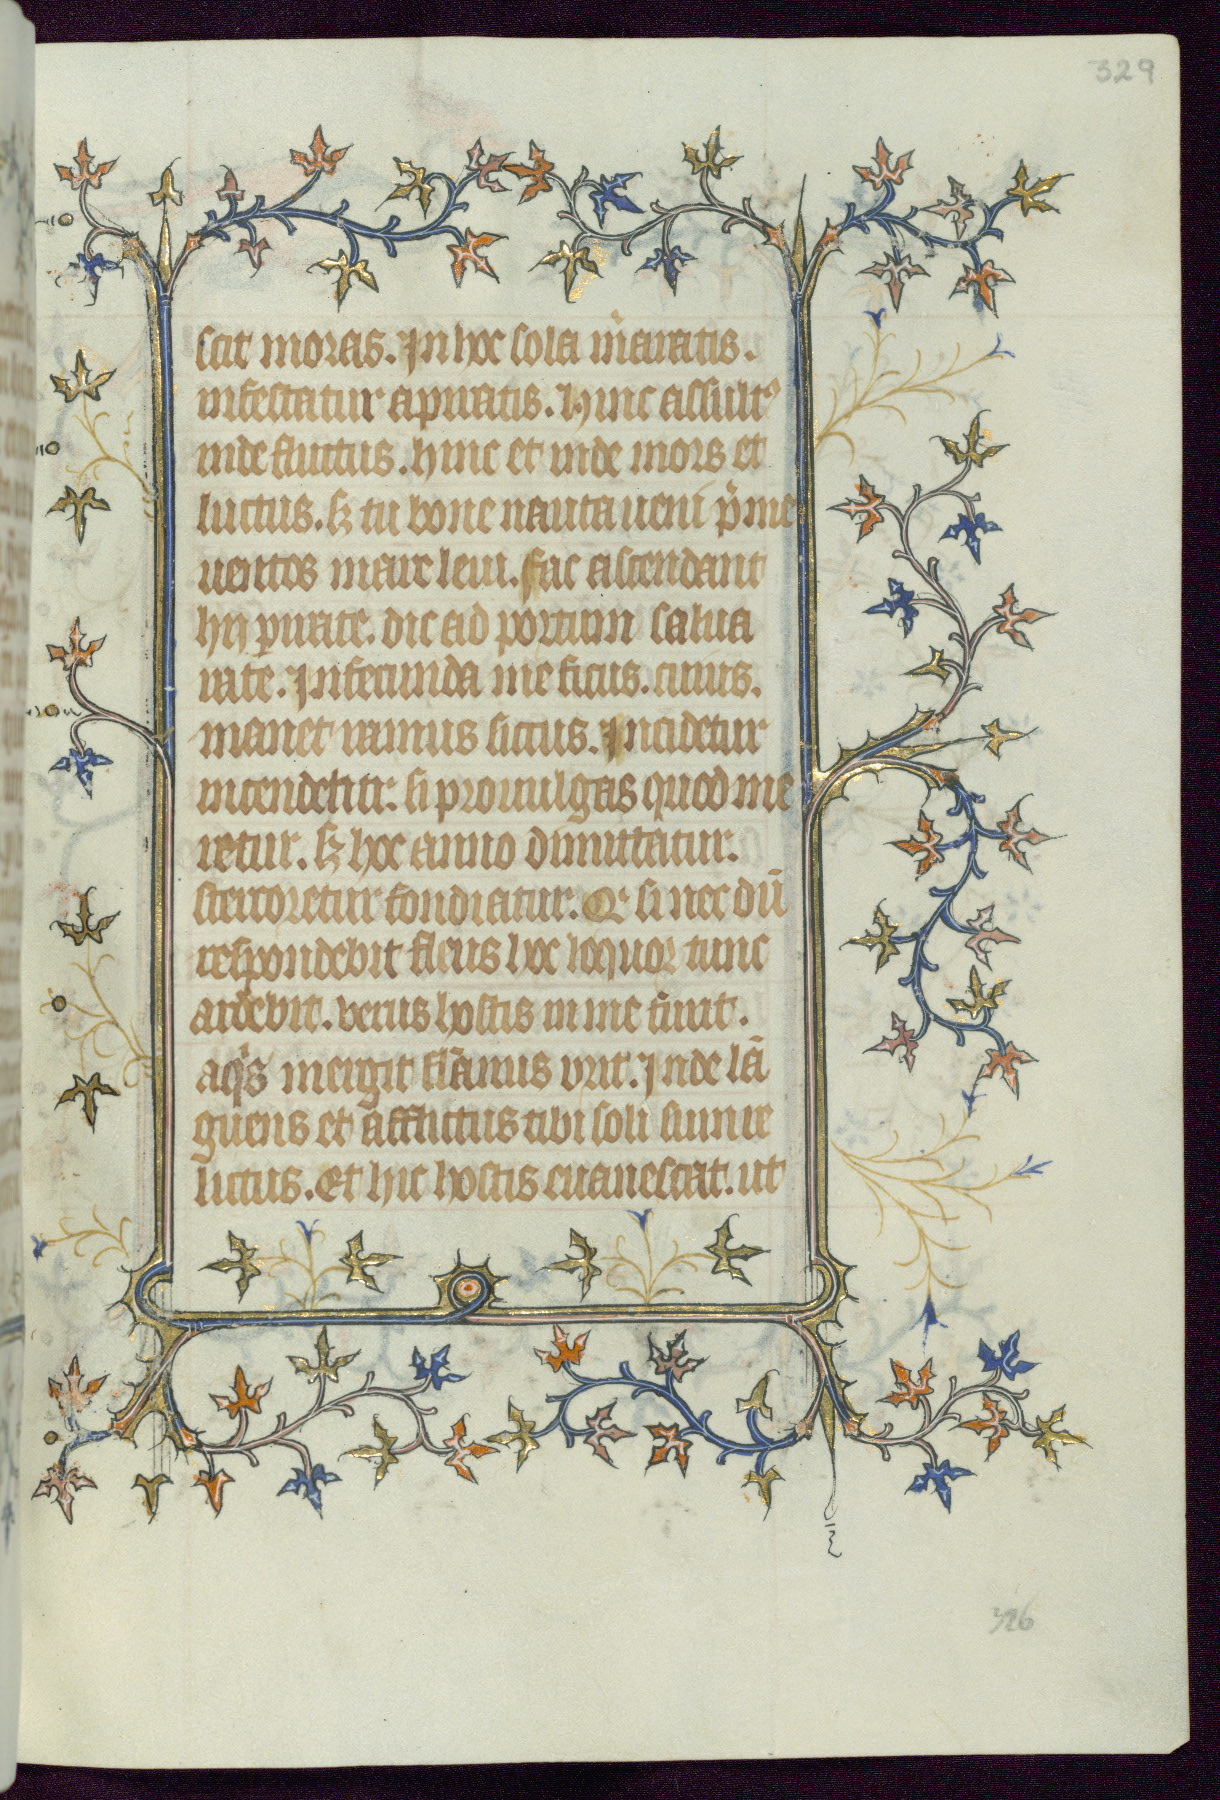 329
scit moras. In hoc sola m̄aratis.
infestatur a piratis. Hinc assultꝰ
inde fluctus. hinc et inde mors et
luctus. sꝫ tu bone nauta ueni p̄me
uentos mare leui. fac ascendant
hij pirate. dic ad portum salua
rate. Infecunda me ficus. cuius.
manet ramus siccus. Incidetur
incendetur: si promulgas quod me
retur. sꝫ hoc anno dimittatur.
stercoretur fondiatur. Qͥ si nec dū
respondebit flens hoc loquor tunc
ardebit. uetus hostis in me furit.
aqͥs mergit flāmis vrit. Inde lā
guens et afflictus tibi soli sum re
lictus. Et hic hostis euanescat. ut
326